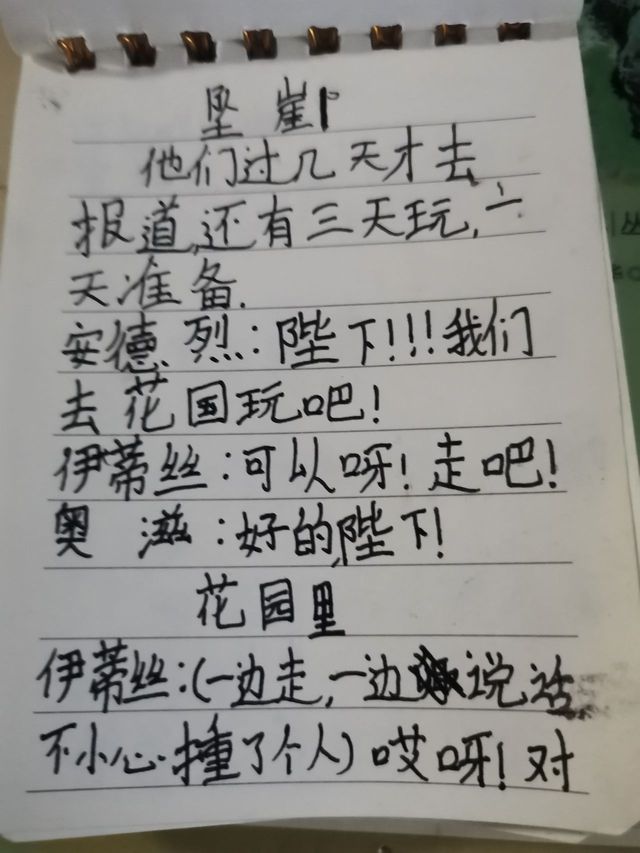 坠崖
他们过几天才去
报道,还有三天玩,六
天准备.
安德烈:陛下!!!我们
去花国玩吧!
伊蒂丝:可以呀!走吧!
奥滋:好的,陛下!
花园里
伊蒂丝:(一边走,一边说话
不小心撞了个人)哎呀!对